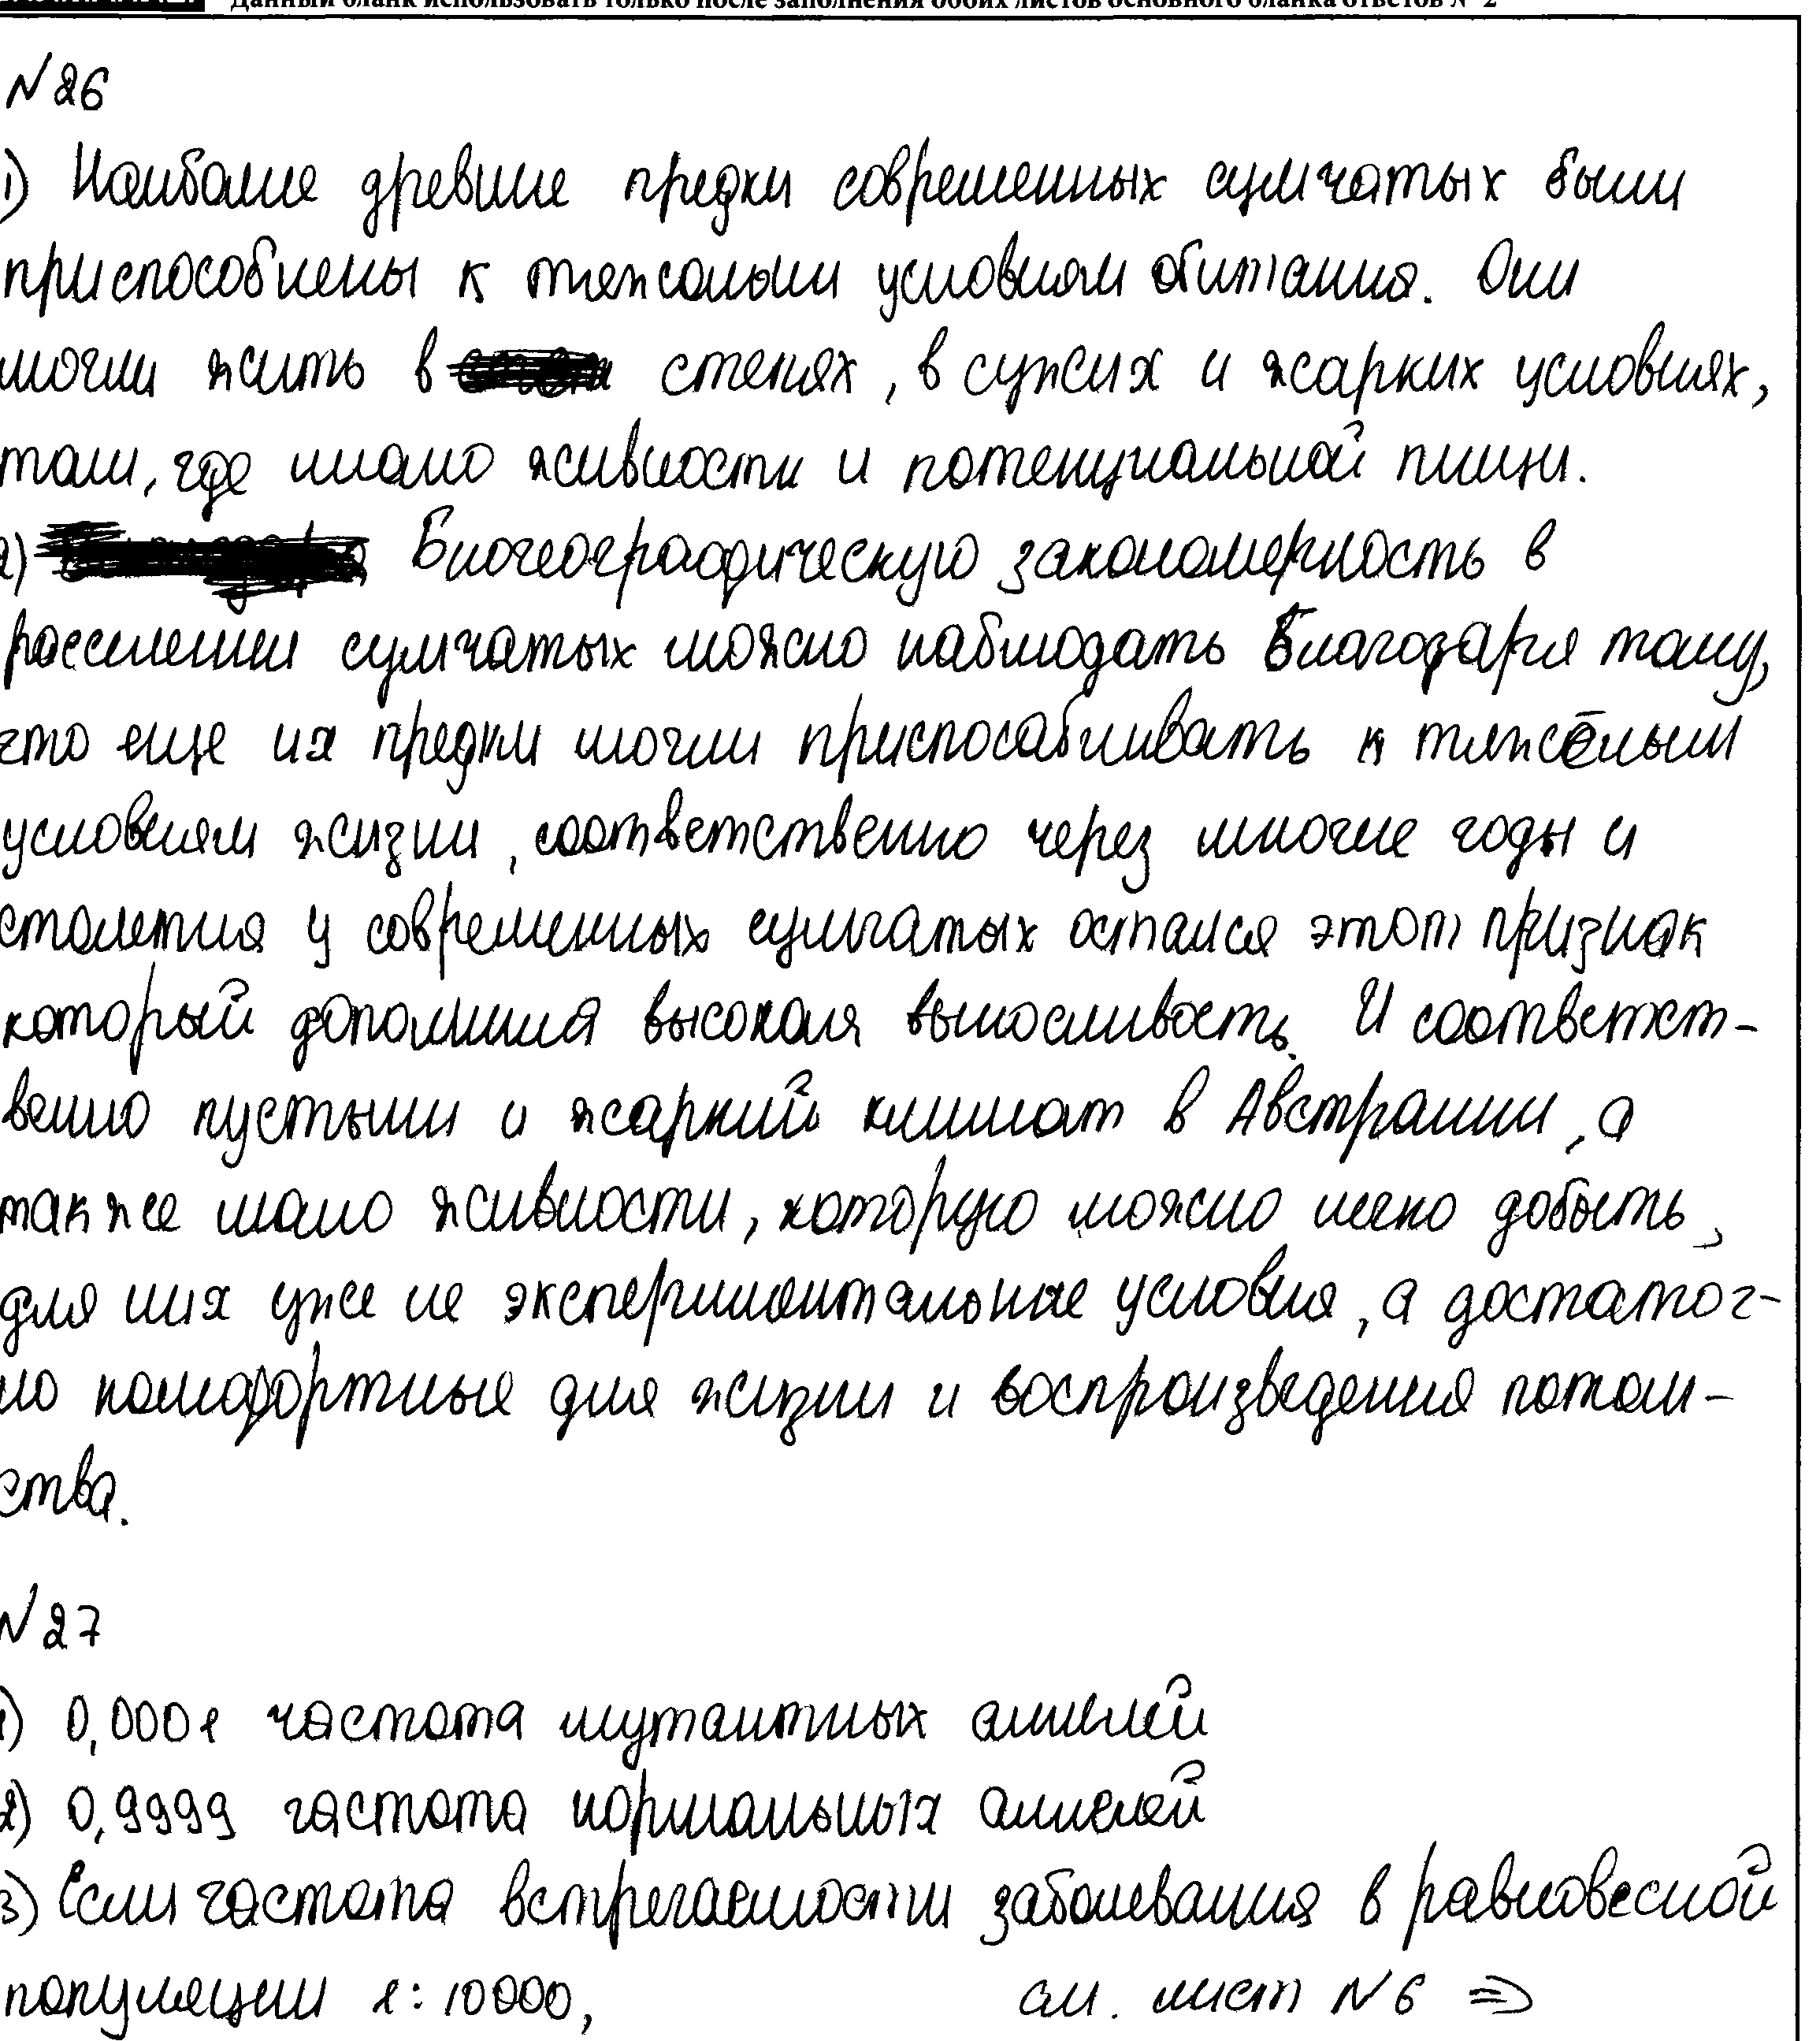 Данный бланк использовать только после заполнения обоих листов основного бланка ответов № 2
№26
1) Наиболие древние предки современных сумчатых были
приспособлены к тяжолым условиям обитания. Они
могли жить в степях, в сужих и жарких условиях,
там, где мало живности и потенциальной пищи.
2) Биогеографическую закономерность в
расселении сумчатых можно наблюдать благодаря тому,
что еще их предки могли приспосабливать к тяжёлым
условиям жизни, соответственно через многие годы и
столетия у современных сумчатых остался этот признак
который дополнила высокая выносливость. И соответст-
венно пустыни и жаркий климат в Австралии, а
также мало живности, которую можно легко добыть,
для них уже не экспериментальные условия, а достаточ-
но комфортные для жизни и воспроизведения потом-
ства.
№27
1) 0,0001 частота мутантных аллелей
2) 0,9999 частота нормальных аллелей
3) Если частота встречаемости заболевания в равновесной
популяции 1:10000, см. лист №6 ⇒